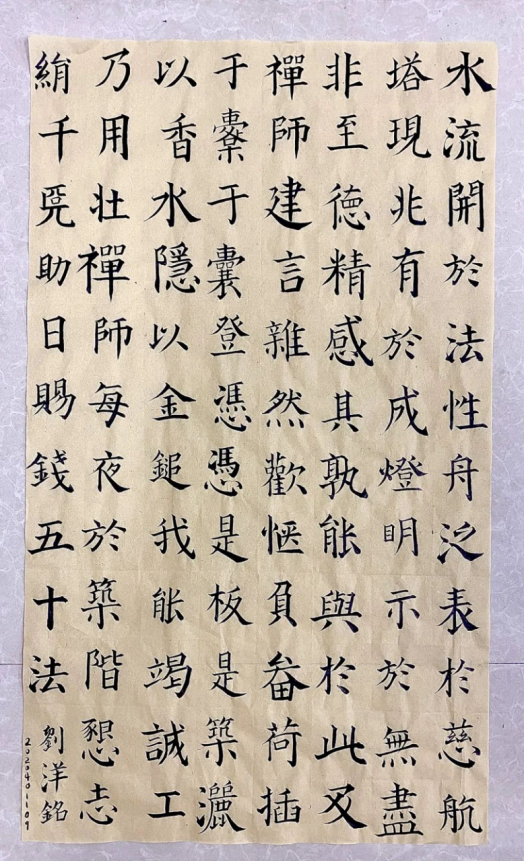 水流開於法性舟泛表於慈航
塔現兆有於成燈明示於無盡
非至德精感其孰能與於此及
禪師建言雜然歡愜負畚荷插
于橐于囊登憑憑是板是築灑
以香水隱以金鎚我能竭誠工
乃用壯禪師每夜於築階懇志
絹千疋助日賜錢五十法
劉洋銘
2020401109